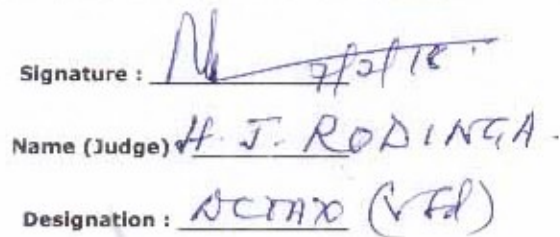 Signature : 7/2/18
Name (Judge) H. J. RODINGA.
Designation :